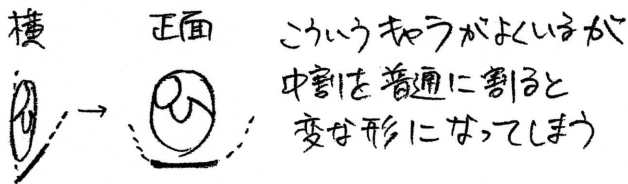 横
正面
こういうキャラがよくいるが
中割を普通に割ると
変な形になってしまう